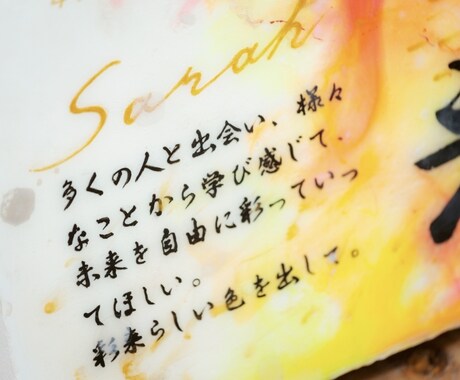 Sarah
多くの人と出会い、様々
なことから学び感じて、
未来を自由に彩っていっ
てほしい。
彩来らしい色を出して。